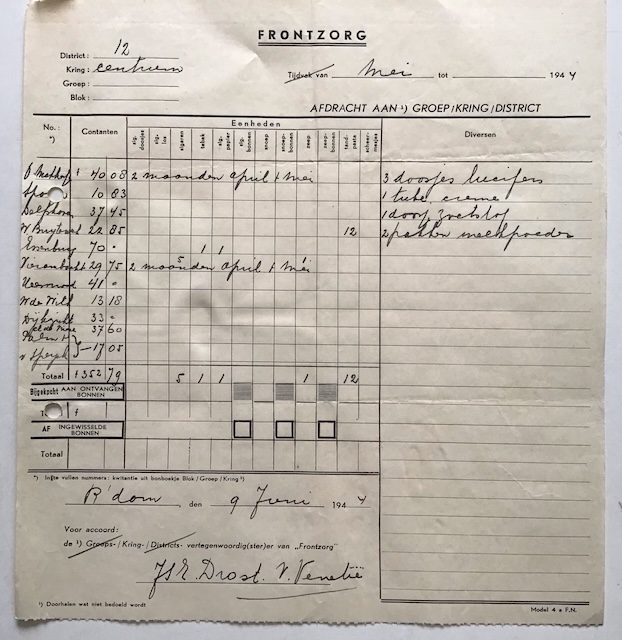 FRONTZORG
District : 12
Kring : centrum
Groep :
Blok :
Tijdvak van Mei tot 1944
AFDRACHT AAN ¹) GROEP/KRING/DISTRICT
No. : *) Contanten Eenheden Diversen
sig. doosjes sig. los sigaren tabak sig. papier sig. bonnen snoep. snoep- bonnen zeep. zeep- bonnen tand- pasta scheer- mesjes
f 40 08 2 maanden april + mei 3 doosjes lucifers
10 83 1 tube creme
Delfshaven 37 45 1 doos zoetstof
22 85 12 2 pakken melkpoeder
70 . 1 1
29 75 2 maanden april + mei
5 1
41 "
W de Wild 13 18
33 "
37 60
17 05
v Speyk
Totaal f 352 79 5 1 1 1 12
Bijgekocht AAN ONTVANGEN BONNEN
f
AF INGEWISSELDE BONNEN
Totaal
*) Infte vullen nummers : kwitantie uit bonboekje Blok / Groep / Kring ¹)
R'dam , den 9 Juni 1944
Voor accoord :
de ¹) Groeps- / Kring- / Districts- vertegenwoordig(st)er van „Frontzorg"
Drost. V. Venetië
¹) Doorhalen wat niet bedoeld wordt
Model 4 a F.N.